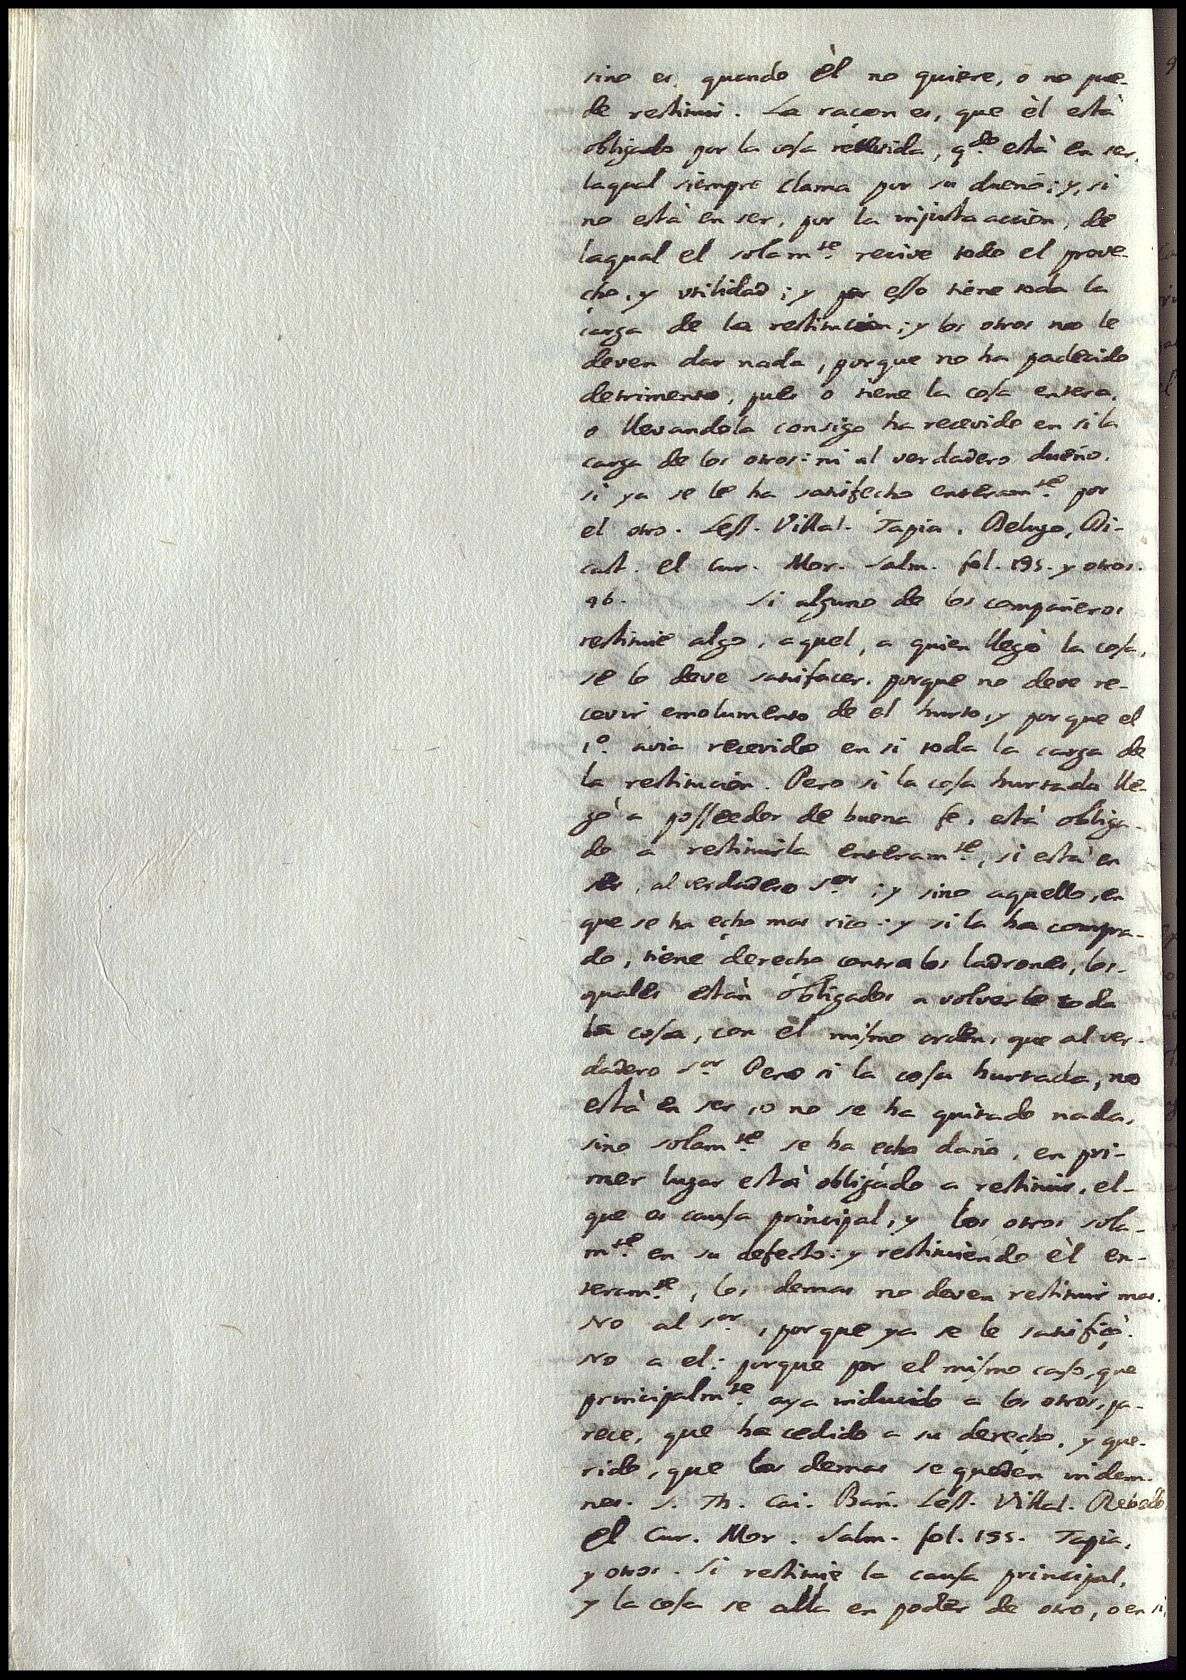 sino es, quando èl no quiere, o no pue-
de restituir. La racon es, que èl està
obligado por la cosa recevida, q.do està en ser,
laqual siempre clama por su dueño; y, si
no està en ser, por la injusta accion, de
laqual el solam.te recive todo el prove-
cho, y utilidad; y por esso tiene toda la
carga de la restitucion; y los otros no le
deven dar nada, porque no ha padecido
detrimento, pues o tiene la cosa entera,
o llevandola consigo ha recevido en si la
carga de los otros: ni al verdadero dueño,
si ya se le ha satisfecho enteram.te por
el otro. Less. Villal. Tapia, Delugo, Di-
cast. el Cur. Mor. Salm. fol. 195. y otros.
96. Si alguno de los compañeros
restituie algo, aquel, a quien llegò la cosa,
se lo deve satisfacer, porque no deve re-
cevir emolumento de el hurto, y porque el
1.o avia recevido en si toda la carga de
la restitucion. Pero si la cosa hurtada lle-
gò a posseedor de buena fe, està obliga-
do a restituirla enteram.te, si està en
ser, al verdadero s.or; y sino aquello, en
que se ha echo mas rico: y si la ha compra-
do, tiene derecho contra los ladrones, los-
quales estàn obligados a volverle toda
la cosa, con el mismo orden, que al ver-
dadero s.or Pero si la cosa hurtada, no
està en ser, o no se ha quitado nada,
sino solam.te se ha echo daño, en pri-
mer lugar està obligado a restituir, el-
que es causa principal, y los otros sola-
m.te en su defecto: y restituiendo èl en-
teram.te, los demas no deven restituir mas.
No al s.or, porque ya se le satisfiçò.
No a el: porque por el mismo caso, que
principalm.te aya inducido a los otros, pa-
rece, que ha cedido a su derecho, y que-
rido, que los demas se queden indem-
nes. S. Th. Cai. Bañ. Less. Villal. Rebello
el Cur. Mor. Salm. fol. 195. Tapia,
y otros. Si restituie la causa principal,
y la cosa se alla en poder de otro, o en si,